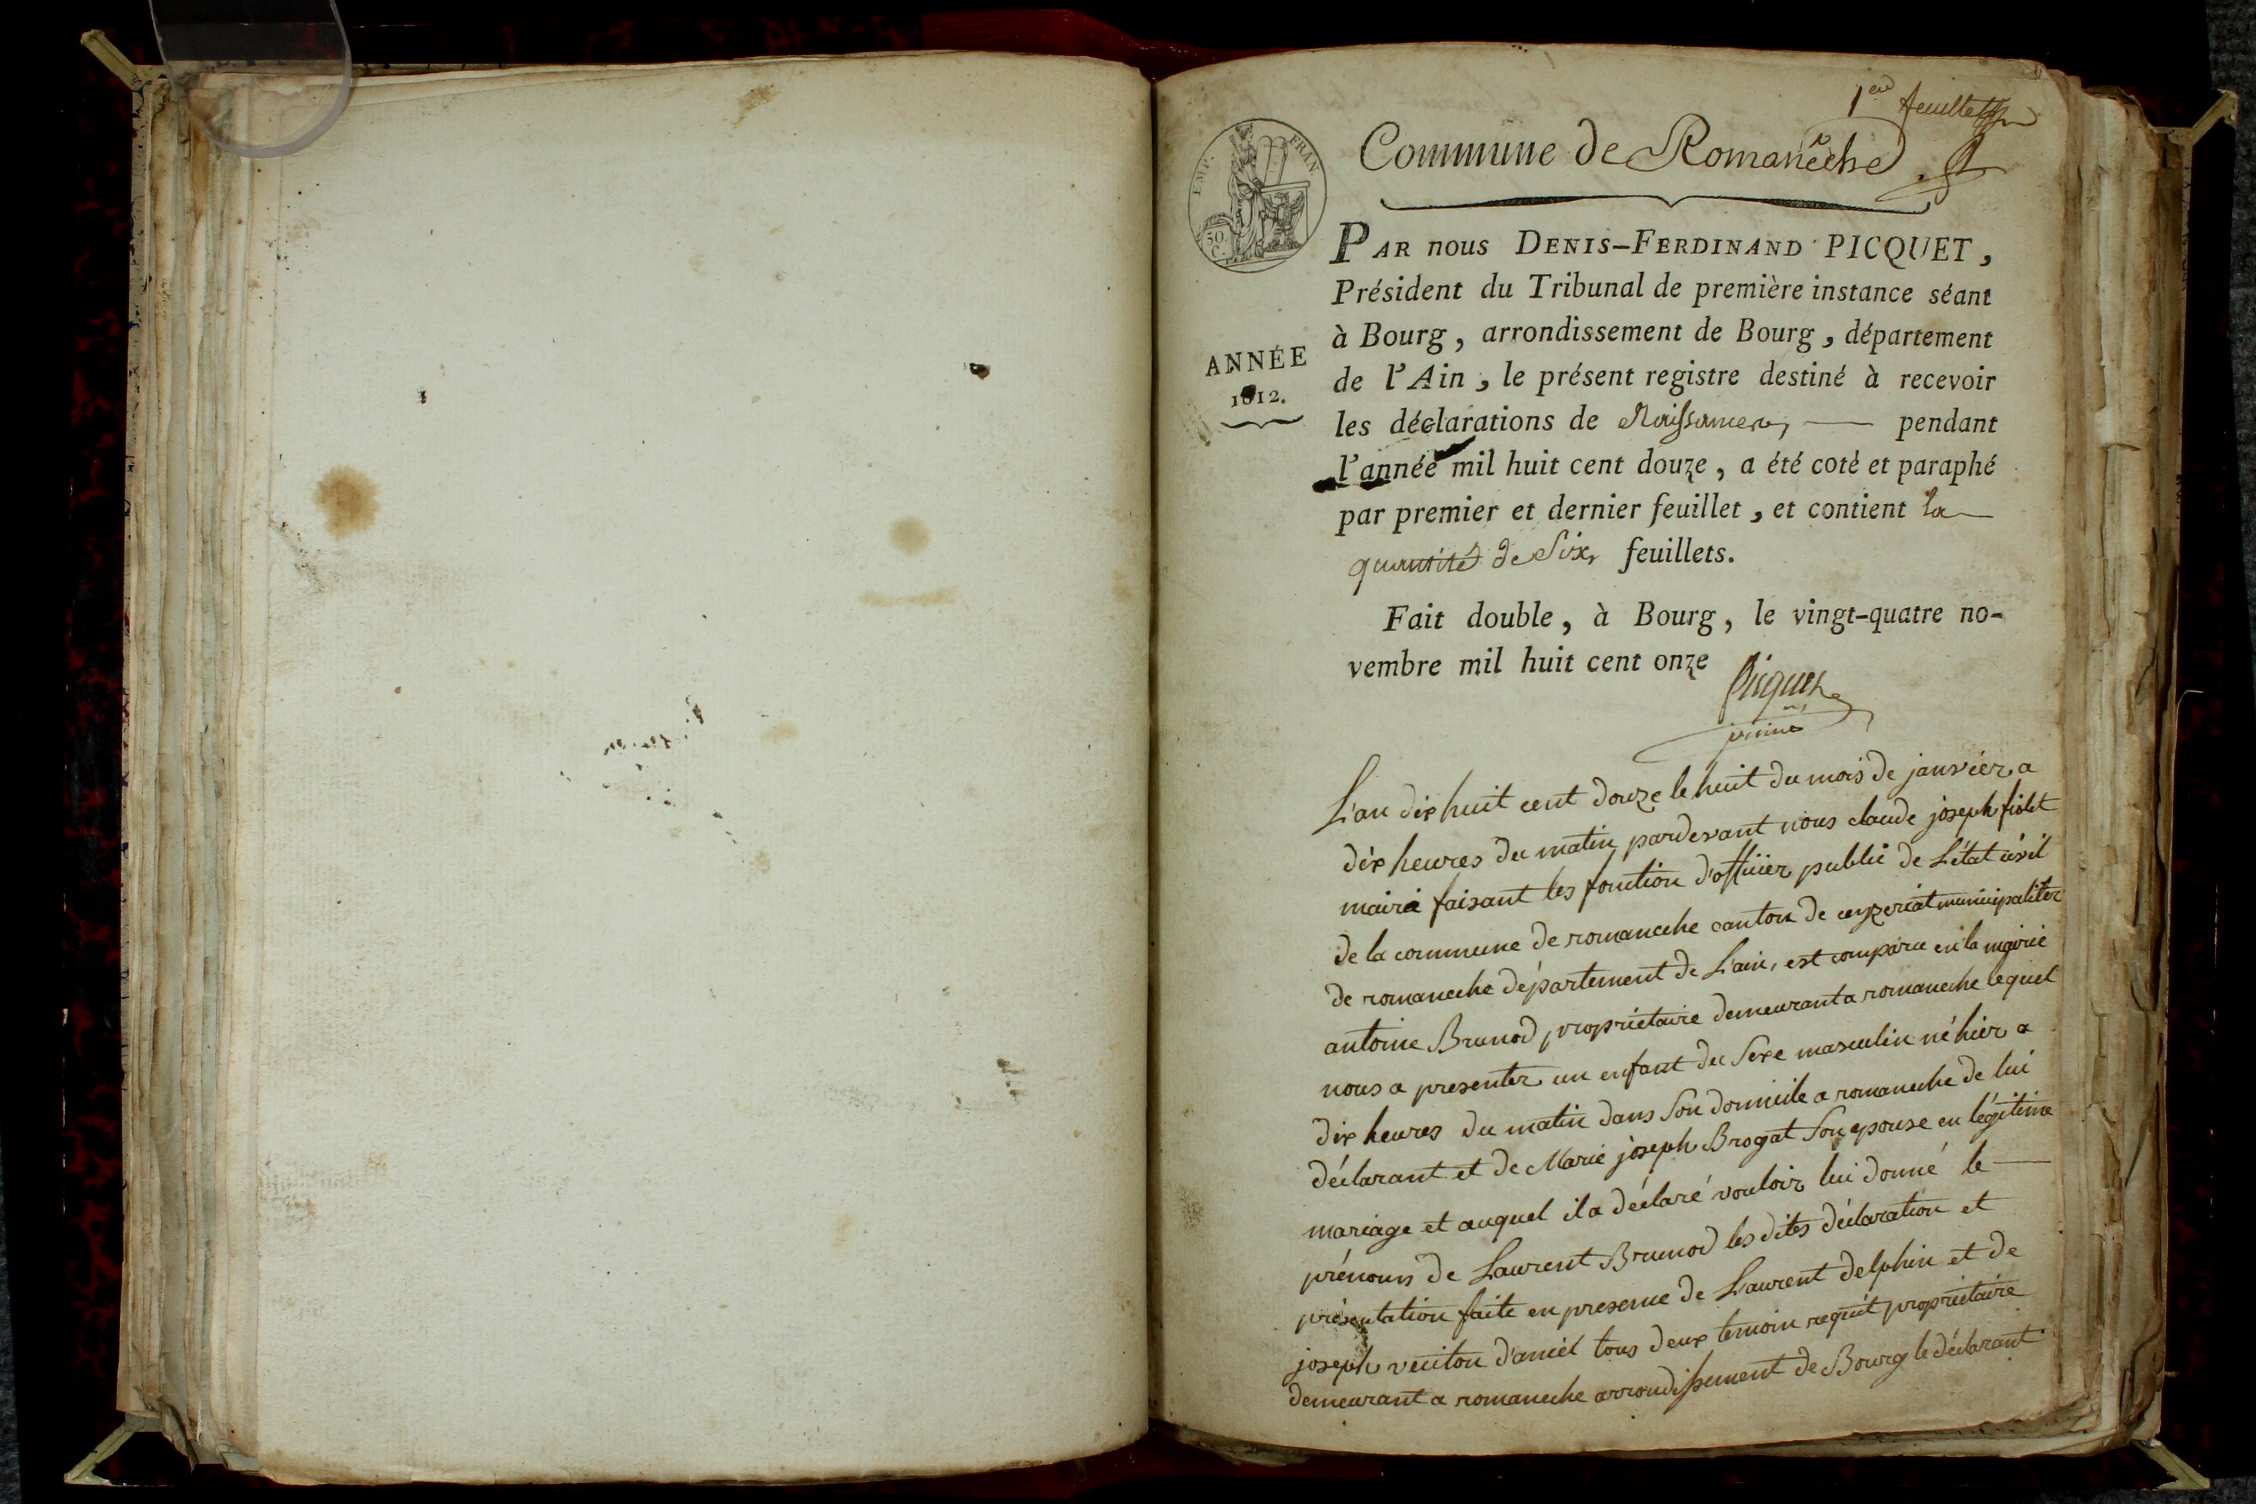 1er feuillet
EMP. FRAN.
50
C.
Commune de Romanêche
PAR nous DENIS-FERDINAND PICQUET,
Président du Tribunal de première instance séant
à Bourg, arrondissement de Bourg, département
ANNÉE
1812.
de l'Ain, le présent registre destiné à recevoir
les déclarations de Naissances, — pendant
l'année mil huit cent douze, a été coté et paraphé
par premier et dernier feuillet, et contient la
quantité de Six feuillets.
Fait double, à Bourg, le vingt-quatre no-
vembre mil huit cent onze
Picquet
L'an dix huit cent douze le huit du mois de janvier a
dix heures du matin pardevant nous claude joseph fiolet
maire faisant les fonction d'officier public de L'état civil
de la commune de romaneche canton de ceyzeriat municipaliter
de romaneche département de L'ain, est comparu en la mairie
antoine Brunod propriétaire demeurant a romaneche lequel
nous a presenter un enfant du Sexe masculin né hier a
dix heures du matin dans Son domicile a romaneche de lui
déclarant et de Marie joseph Brogat Son epouse en légitime
mariage et auquel il a déclaré vouloir lui donné le —
prénoms de Laurent Brunod les dites déclaration et
présentation faite en presence de Laurent delphin et de
joseph veuiton d'aniel tous deux temoin requit propriétaire
demeurant a romaneche arrondissement de Bourg le déclarant